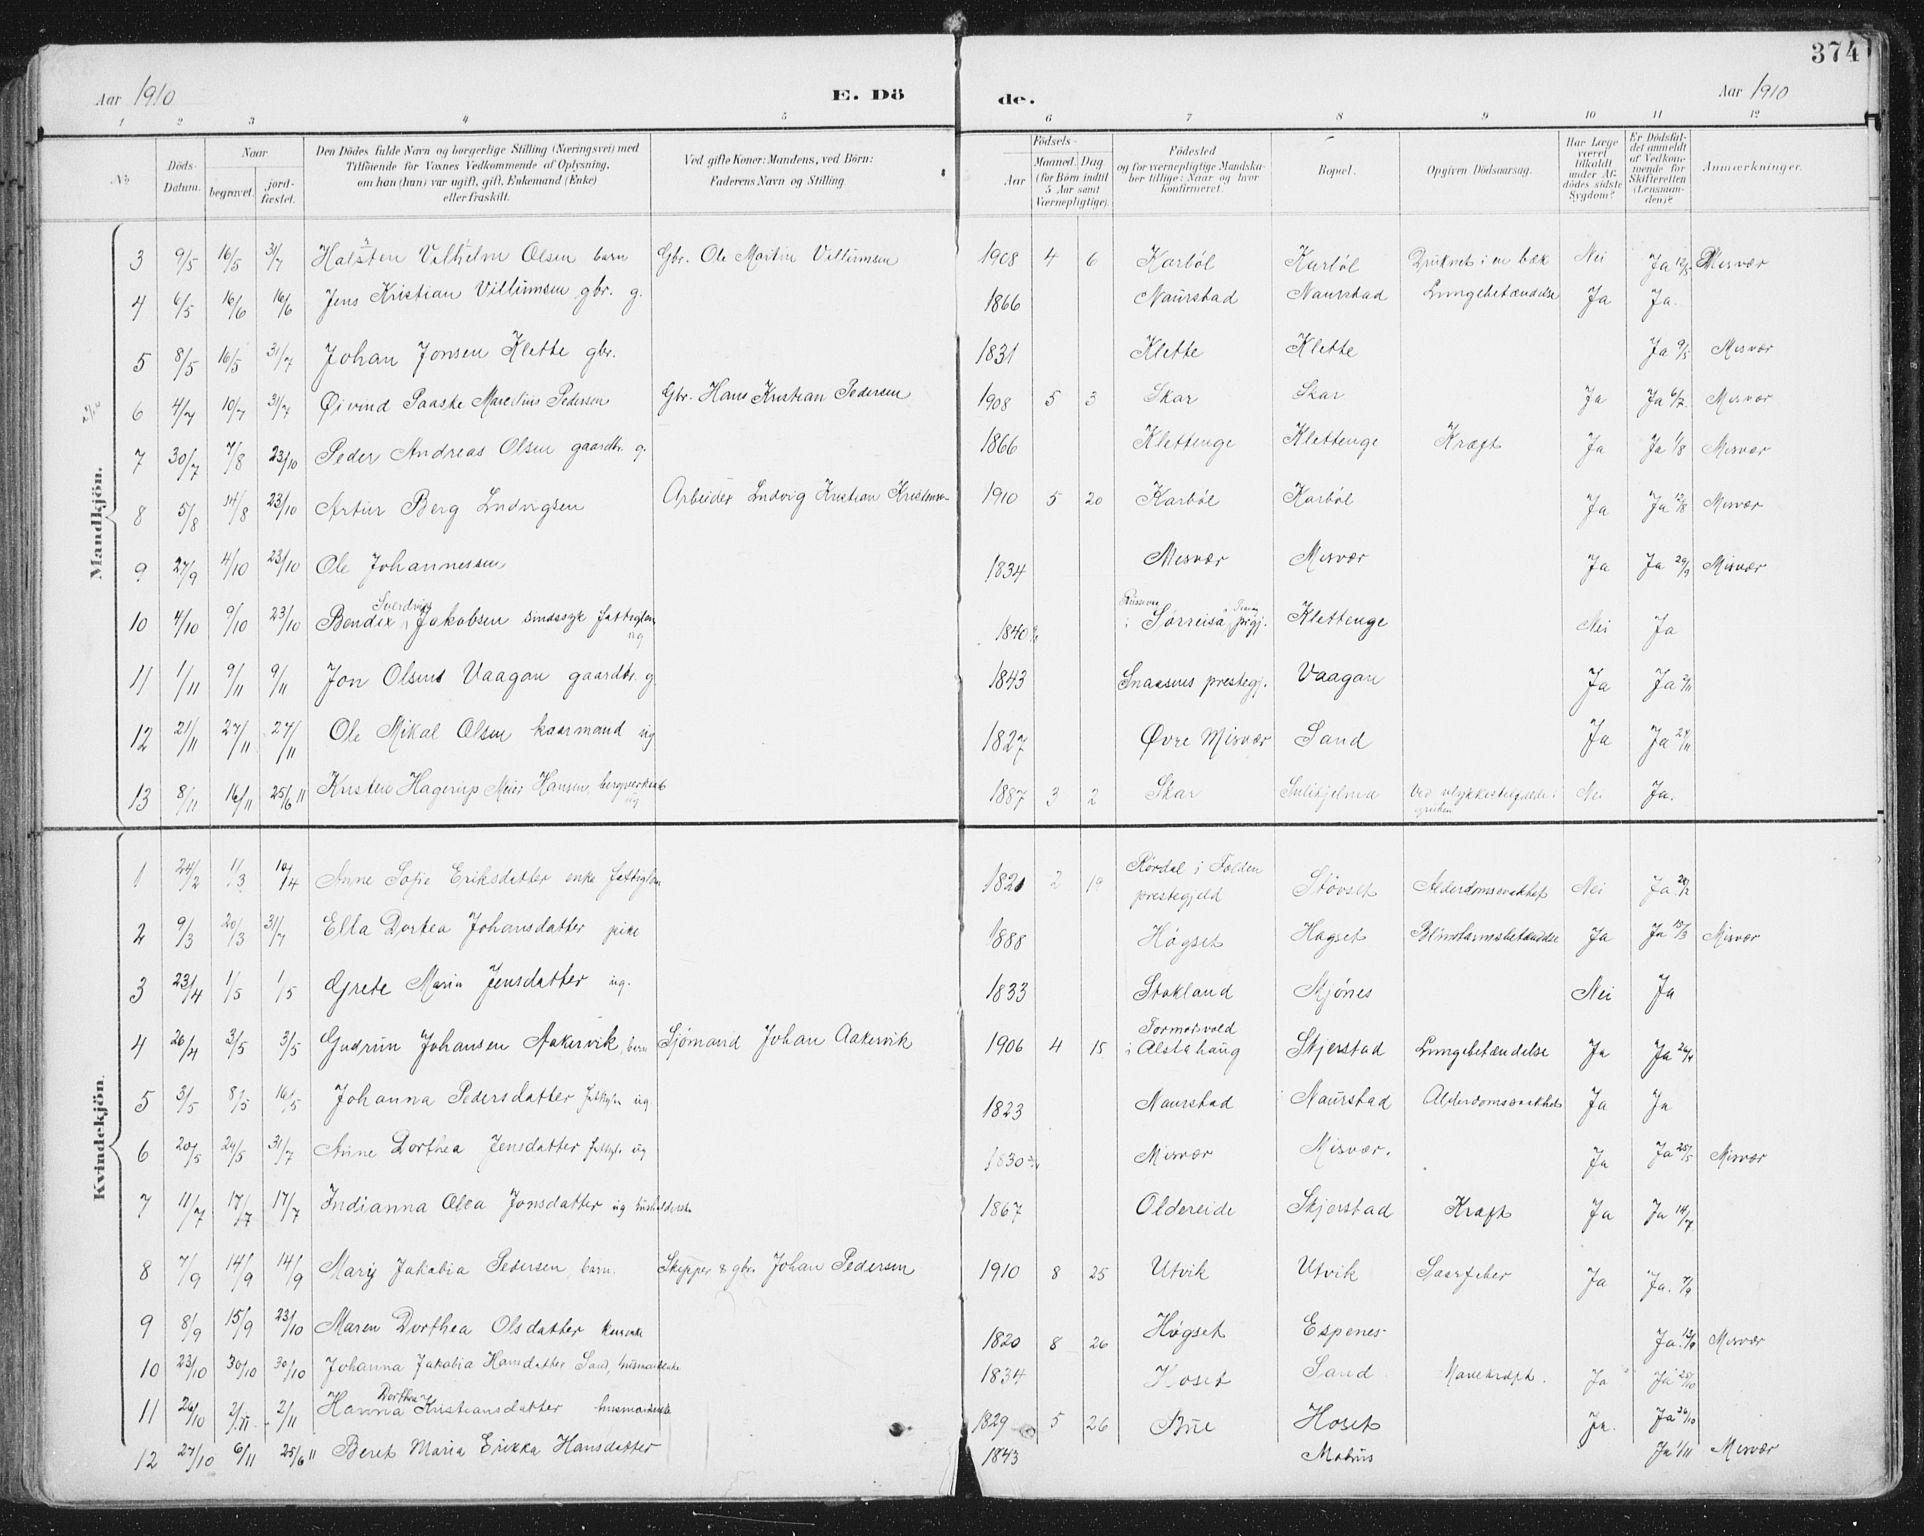 374
Aar 1910 E. Dö de. Aar 1910
1 2 3 4 5 6 7 8 9 10 11 12
No. Döds-Datum. Naar begravet. jord-fæstet. Den Dödes fulde Navn og borgerlige Stilling (Næringsvei) med Tilföiende for Voxnes Vedkommende af Oplysning, om han (hun) var ugift, gift, Enkemand (Enke) eller fraskilt. Ved gifte Koner: Mandens, ved Börn: Faderens Navn og Stilling. Födsels- Aar Maaned. Dag (for Börn indtil 5 Aar samt Værnepligtige). Födested og for værnepligtige Mandskaber tillige: Naar og hvor konfirmeret. Bopæl. Opgiven Dödsaarsag. Har Læge været tilkaldt under Afdödes sidste Sygdom? Er Dödsfaldet anmeldt af Vedkommende for Skifteretten (Lensmanden)? Anmærkninger.
Mandkjön.
3 9/5 16/5 31/7 Halsten Vilhelm Olsen barn Gbr. Ole Martin Villumsen 1908 4 6 Karbøl Karbøl Druknet i en bæk Nei Ja 12/5 Misvær
4 6/5 16/6 16/6 Jens Kristian Villumsen gbr. g. 1866 Naurstad Naurstad Lungebetændelse Ja Ja.
5 8/5 16/5 31/7 Johan Jonsen Klette gbr. 1831 Klette Klette Ja 9/5 Misvær
6 4/7 10/7 31/7 Øivind Paaske Marelius Pedersen Gbr. Hans Kristian Pedersen 1908 5 3 Skar Skar Ja Ja 6/7 Misvær
7 30/7 7/8 23/10 Peder Andreas Olsen gaardbr. g. 1866 Klettenge Klettenge Kræft Ja Ja 1/8 Misvær
8 5/8 14/8 23/10 Artur Berg Ludvigsen Arbeider Ludvig Kristian Kristensen 1910 5 20 Karbøl Karbøl Ja Ja 12/8 Misvær
9 27/9 4/10 23/10 Ole Johannessen 1834 Misvær Misvær Ja Ja 29/9 Misvær
10 4/10 9/10 23/10 Bendix Sverdrup Jakobsen sindssyk fattiglem ug 1840 i Sørreisa prgj. Klettenge Nei Ja
11 1/11 9/11 9/11 Jon Olsens Vaagan gaardbr. g. 1843 Snaasens prestegj. Vaagan Ja Ja 2/11
12 21/11 27/11 27/11 Ole Mikal Olsen kaarmand ug 1827 Øvre Misvær Sand Ja Ja 24/11
13 8/11 16/11 25/6 11 Kristen Hagerup Meier Hansen, bergverksarb ug 1887 3 2 Skar Sulitjelma Ved ulykkestilfælde i gruben Nei Ja.
Kvindekjön.
1 24/2 1/3 10/4 Anne Sofie Eriksdatter enke fattiglem 1821 2 19 Rørdal i Folden prestegjeld Støvset Alderdomssvakhet Nei Ja 26/2
2 9/3 20/3 31/7 Ella Dortea Johansdatter pike 1888 Høgset Høgset Blindtarmsbetændelse Ja Ja 15/3 Misvær
3 23/4 1/5 1/5 Grete Maria Jensdatter ug. 1833 Stokland Skjønes Nei Ja
4 26/4 3/5 3/5 Gudrun Johansen Aakervik, barn Sjømand Johan Aakervik 1906 4 15 Tormorsvold i Alstahaug Skjerstad Lungebetændelse Ja Ja 26/4
5 3/5 8/5 16/5 Johanna Pedersdatter fattiglem ug. 1823 Naurstad Naurstad Alderdomssvakhet Ja Ja
6 20/5 24/5 31/7 Anne Dorthea Jensdatter fattiglem ug 1830 Misvær Misvær. Ja Ja 25/5 Misvær
7 11/7 17/7 17/7 Indianna Olea Jonsdatter ug husholderske 1867 Oldereide Skjerstad Kræft Ja Ja 14/7
8 7/9 14/9 14/9 Mary Jakobia Pedersen, barn. Skipper & gbr. Johan Pedersen 1910 8 25 Utvik Utvik Ja Ja. 7/9
9 8/9 15/9 23/10 Maren Dorthea Olsdatter 1820 8 26 Høgset Espenes Ja. 12/9 Misvær
10 23/10 30/10 30/10 Johanna Jakobia Hansdatter Sand, husmandsenke 1834 Hoset Sand Mavekræft. Ja Ja 25/10
11 26/10 2/11 2/11 Hanna Dorthea Kristiansdatter husmandsenke 1829 5 26 Bue Hoset Ja. Ja 26/10
12 27/10 6/11 25/6 11 Beret Maria Erikka Hansdatter 1843 Ja 1/11 Misvær